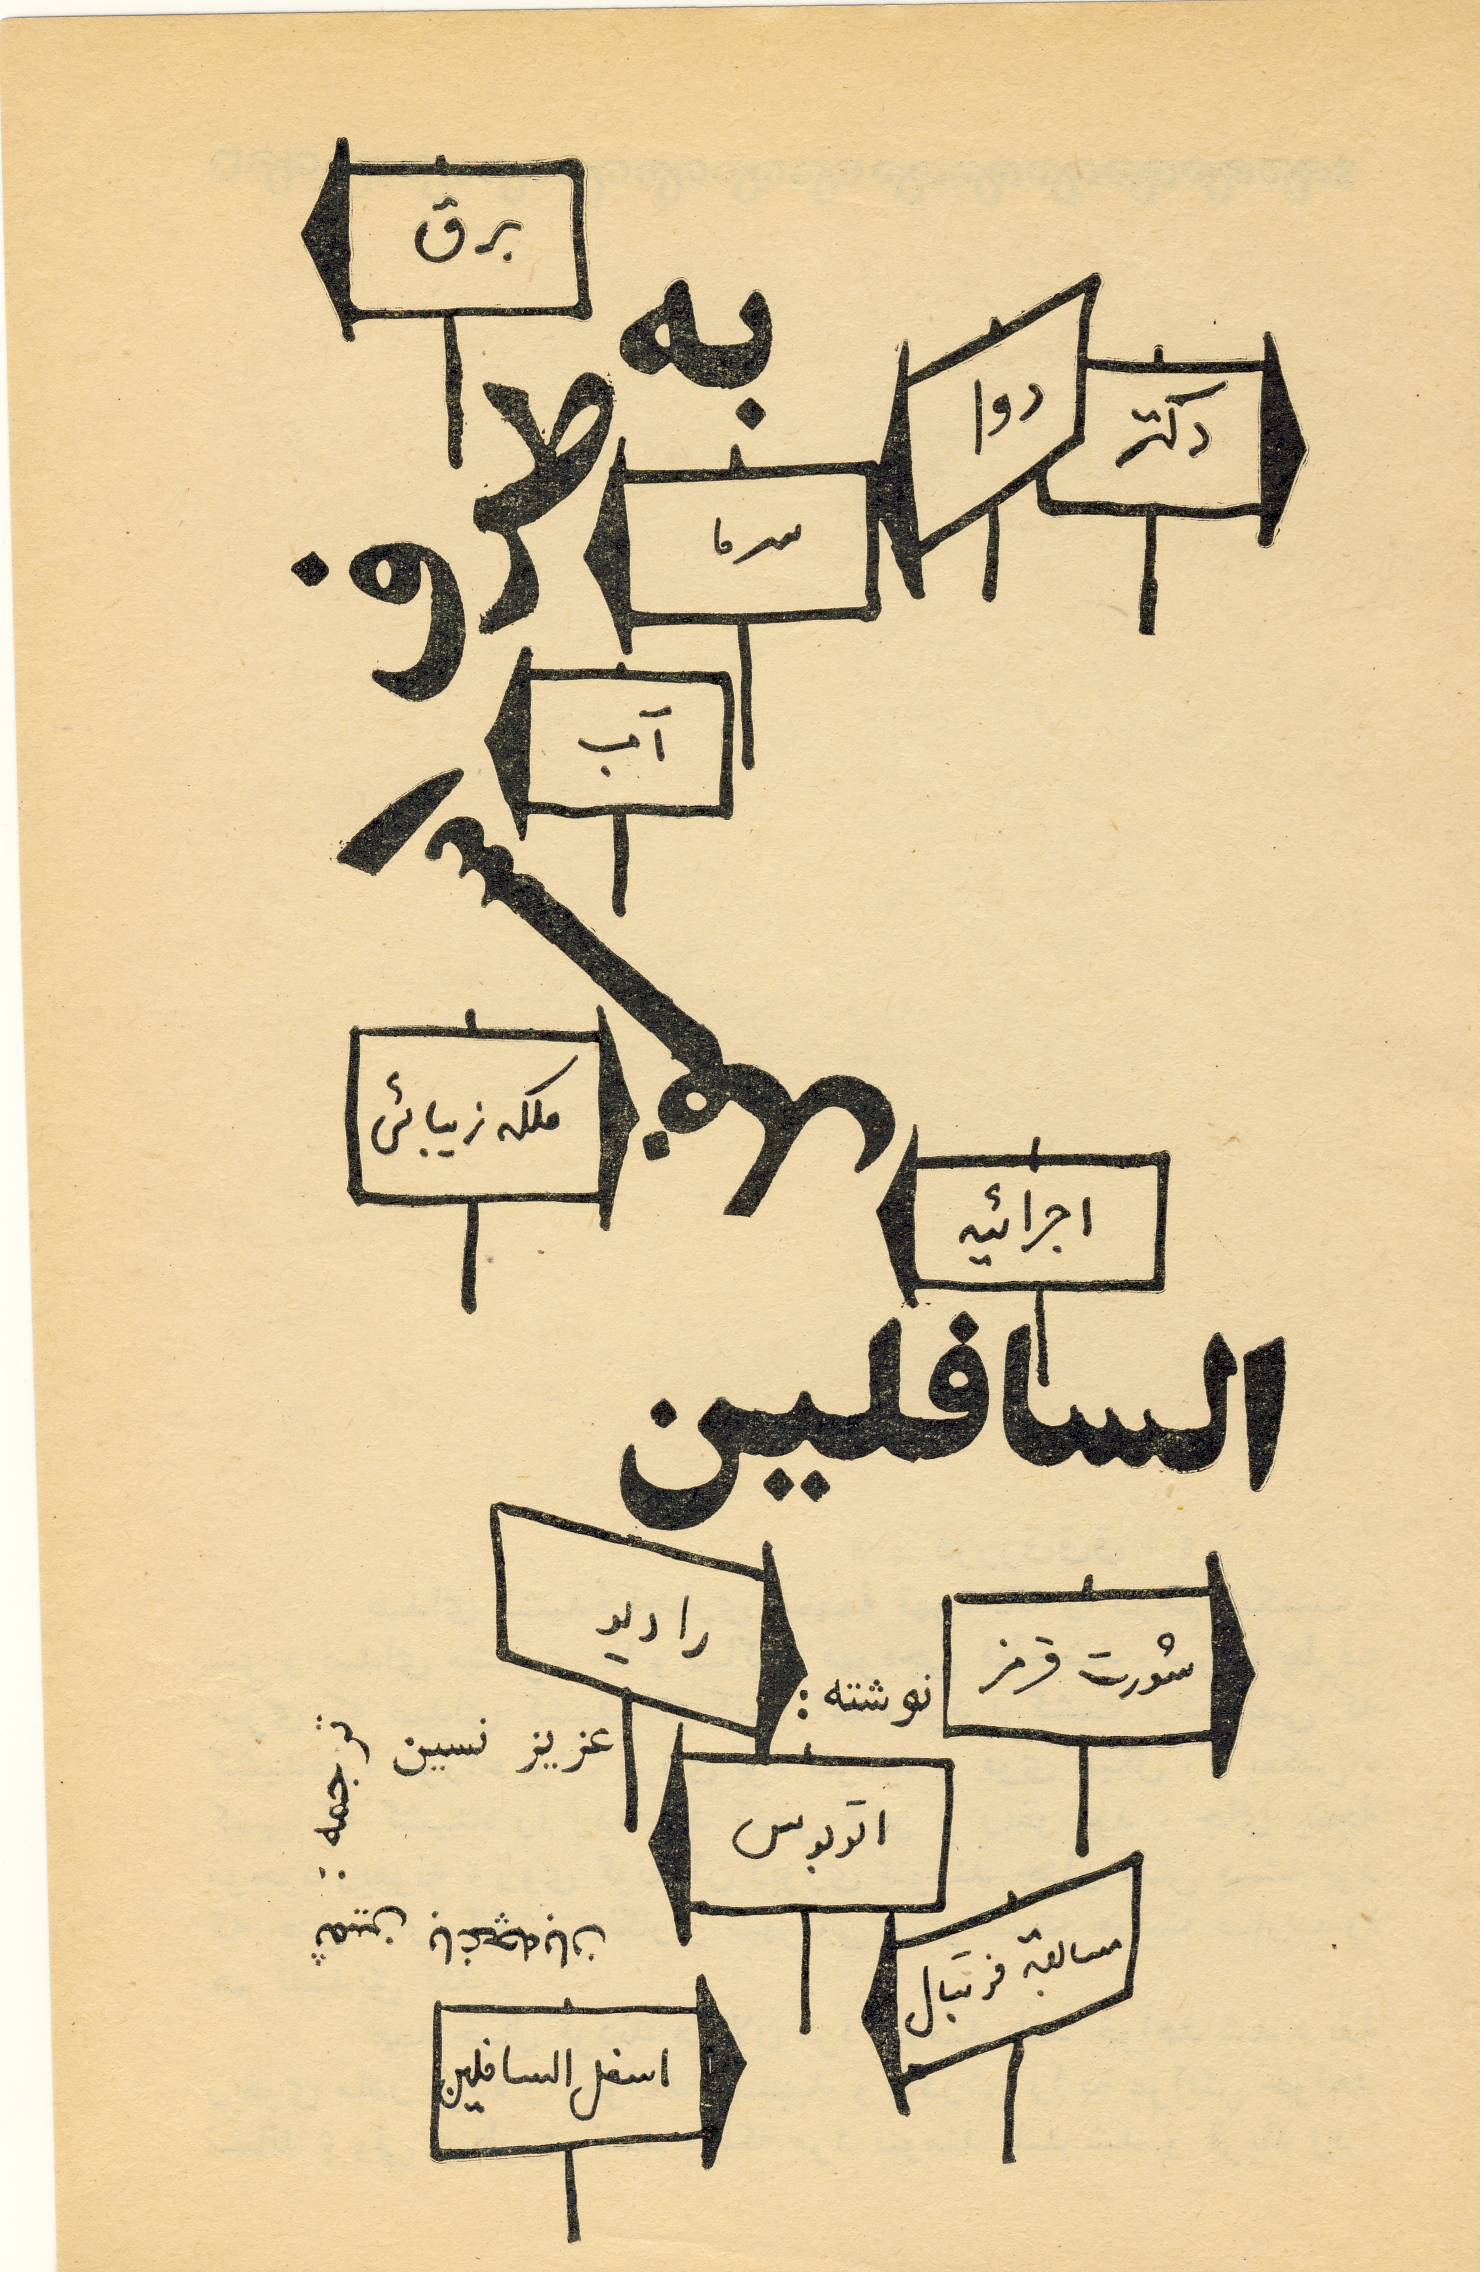 برق
به
طرف
دوا
دکتر
سرما
آب
اسفل
ملکه زیبائی
اجرائیه
السافلین
رادیو
شورت قرمز
نوشته :
عزیز نسین
ترجمه :
ثمین باغچه‌بان
اتوبوس
مسابقهٔ فوتبال
اسفل السافلین